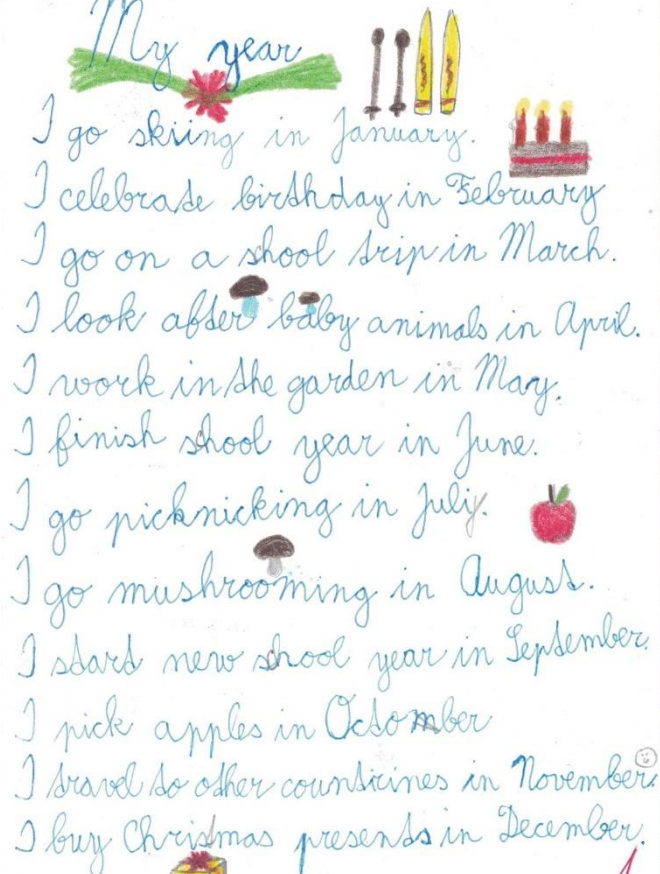 My year
I go skiing in January.
I celebrate birthday in February
I go on a shool trip in March.
I look after baby animals in April.
I work in the garden in May.
I finish shool year in June.
I go picknicking in July.
I go mushrooming in August.
I start new shool year in September.
I pick apples in Octomber
I travel to other countirines in November.
I buy Christmas presents in December.